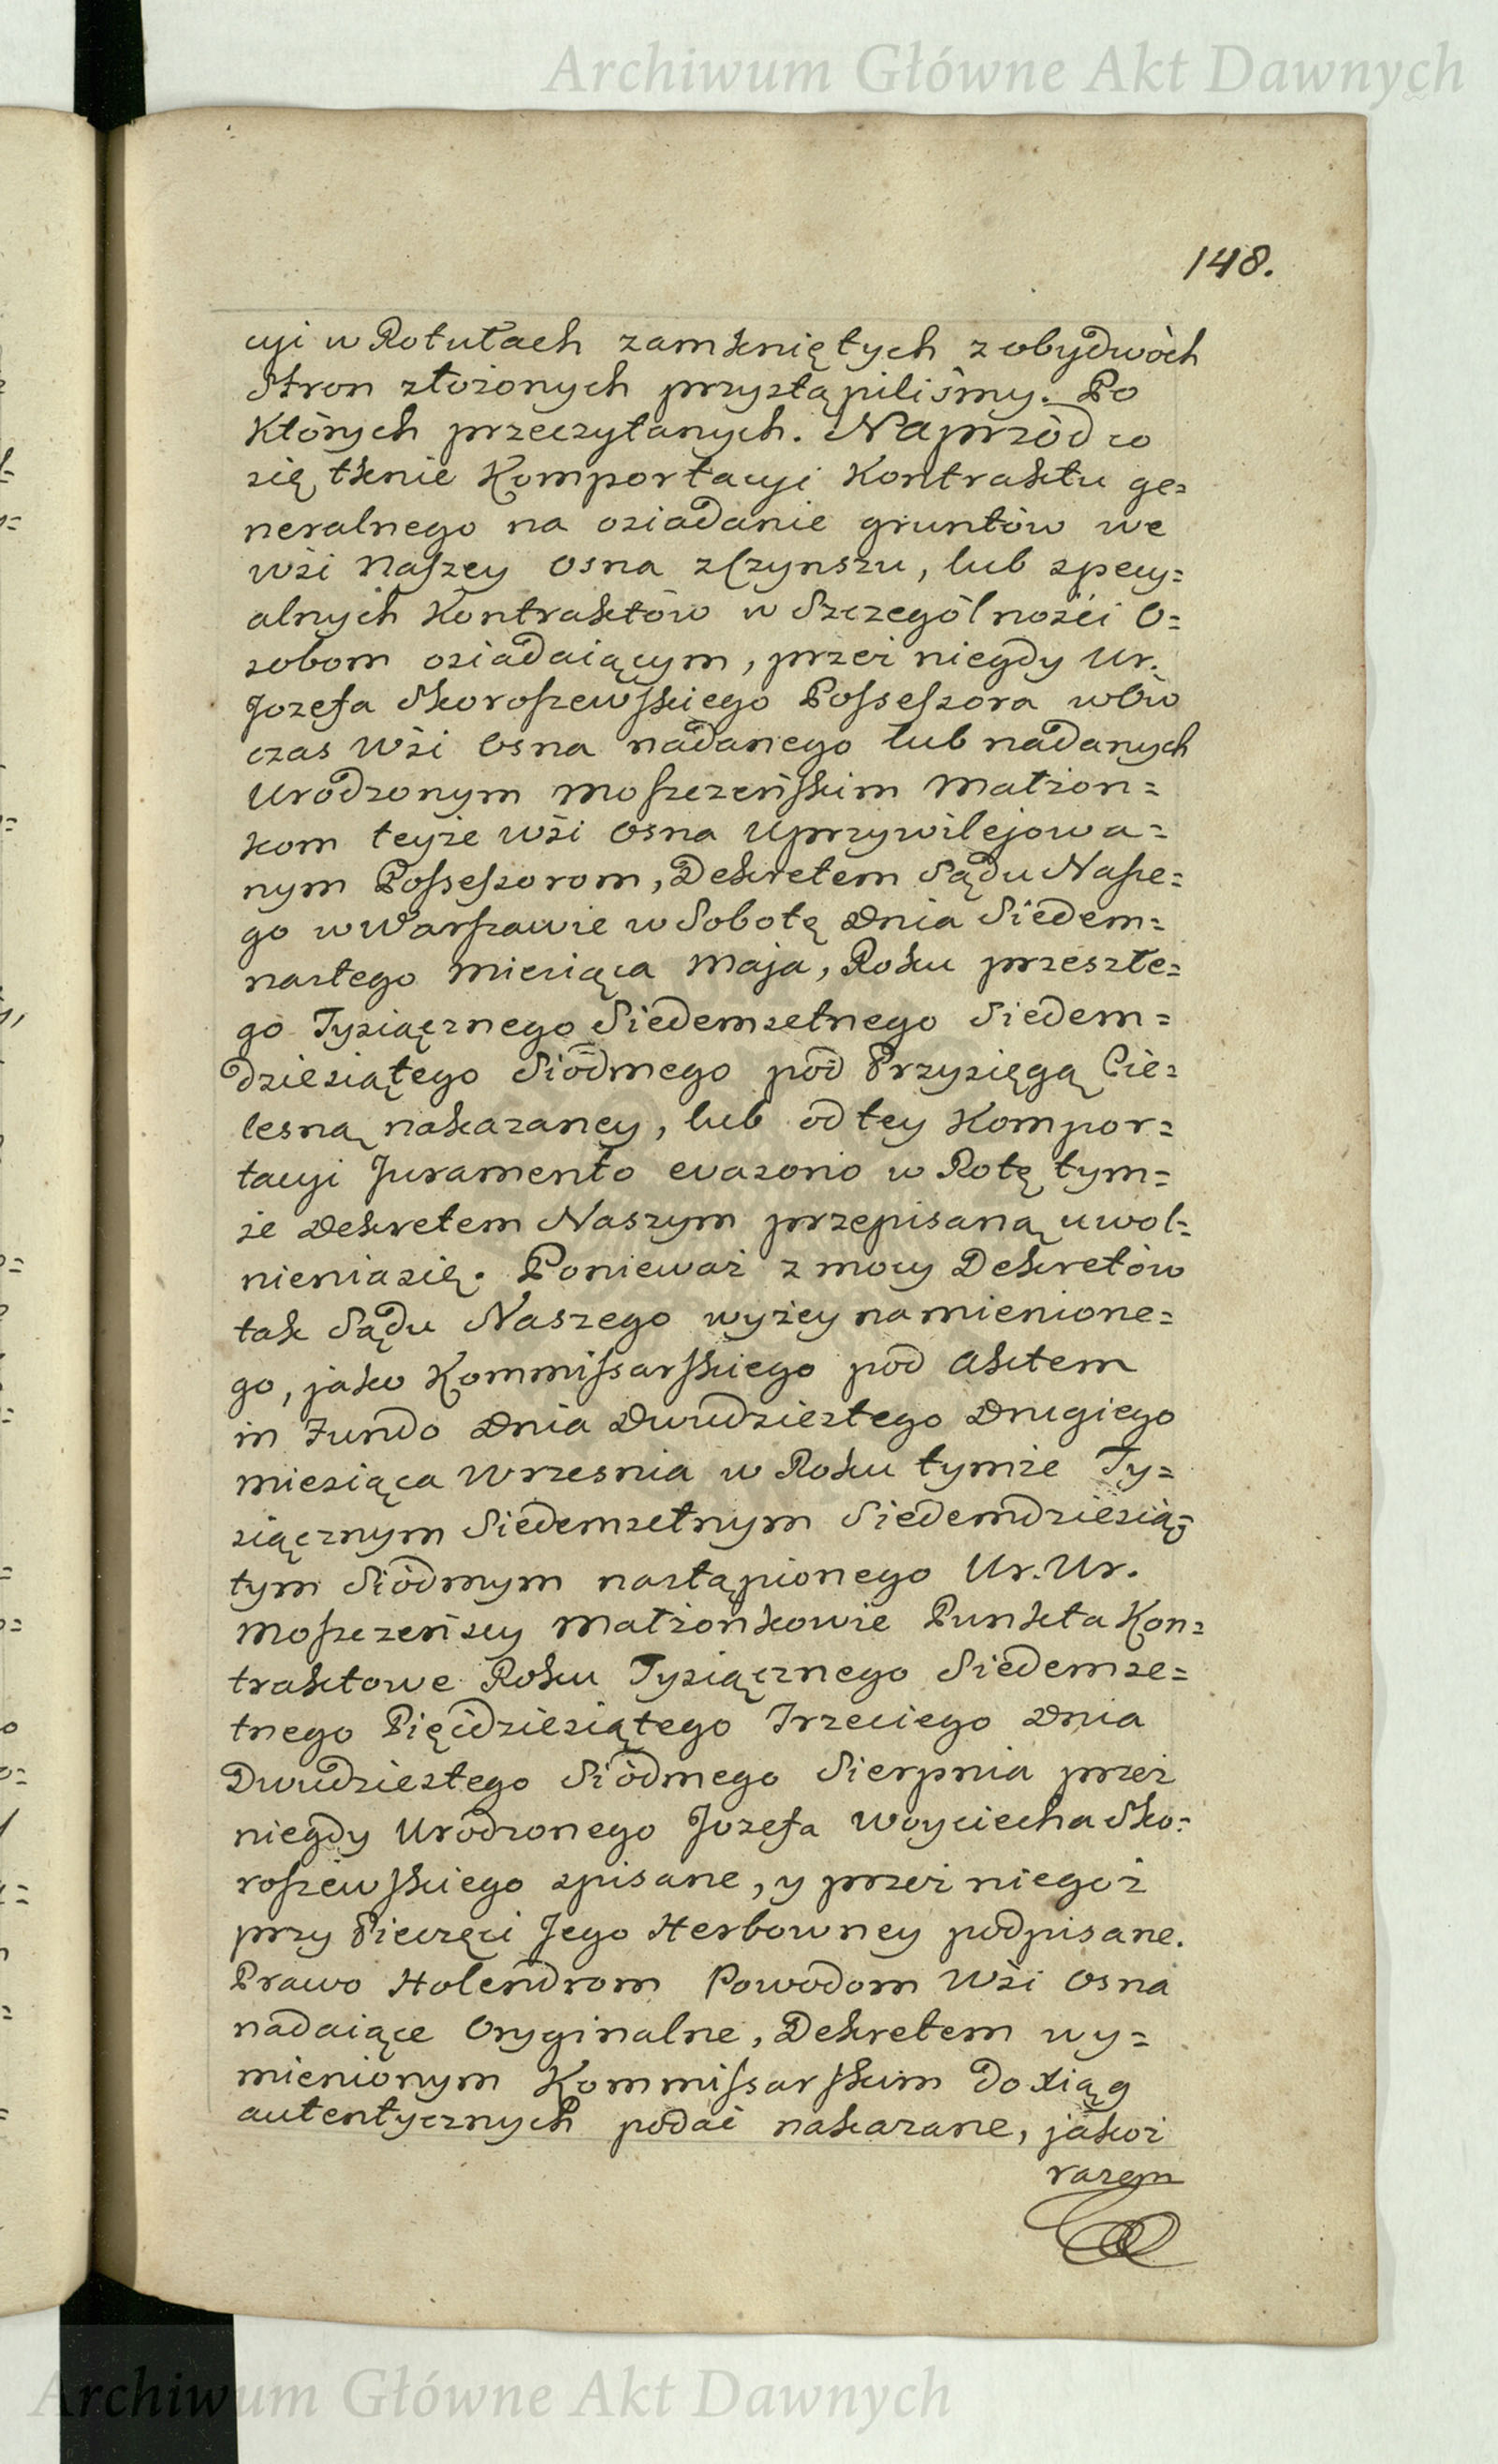 Archiwum Główne Akt Dawnych
148.
cyi w Rotułach zamkniętych z obydwóch
Stron złożonych przystąpiliśmy. Po
Których przeczytanych. Naprzód co
się tknie Komportacyi Kontraktu ge=
neralnego na osiadanie gruntów we
wśi Naszey Osna z Czynszu, lub specy=
alnych Kontraktów w Szczególnośći O=
sobom osiadaiącym, przez niegdy Ur.
Jozefa Skoroszewskiego Possessora wów
czas Wśi Osna nadanego lub nadanych
Urodzonym Moszczeńskim Małżon=
kom teyże Wśi Osna Uprzywilejowa=
nym Possessorom, Dekretem Sądu Nasze=
go w Warszawie w Sobotę Dnia Siedem=
nastego Miesiąca Maja, Roku przeszłe=
go Tysiącznego Siedemsetnego Siedem=
dziesiątego Siódmego pod Przysięgą Cie=
lesną nakazaney, lub od tey Kompor=
tacyi Juramento evasorio w Rotę tym=
że Dekretem Naszym przepisaną uwol=
nienia się. Ponieważ z mocy Dekretów
tak Sądu Naszego wyżey namienione=
go, jako Kommissarskiego pod Aktem
in Fundo Dnia Dwudziestego Drugiego
Miesiąca Wrzesnia w Roku tymże Ty=
siącznym Siedemsetnym Siedemdziesią=
tym Siódmym nastąpionego Ur. Ur.
Moszczeńscy Małżonkowie Punkta Kon=
traktowe Roku Tysiącznego Siedemse=
tnego Pięćdziesiątego Trzeciego Dnia
Dwudziestego Siódmego Sierpnia przez
niegdy Urodzonego Jozefa Woyciecha Sko=
roszewskiego spisane, y przez niegoż
przy Pieczęci Jego Herbowney podpisane.
Prawo Holendrom Powodom Wśi Osna
nadaiące Oryginalne, Dekretem wy=
mienionym Kommissarskim do Xiąg
autentycznych podać nakazane, jakoż
razem
Archiwum Główne Akt Dawnych